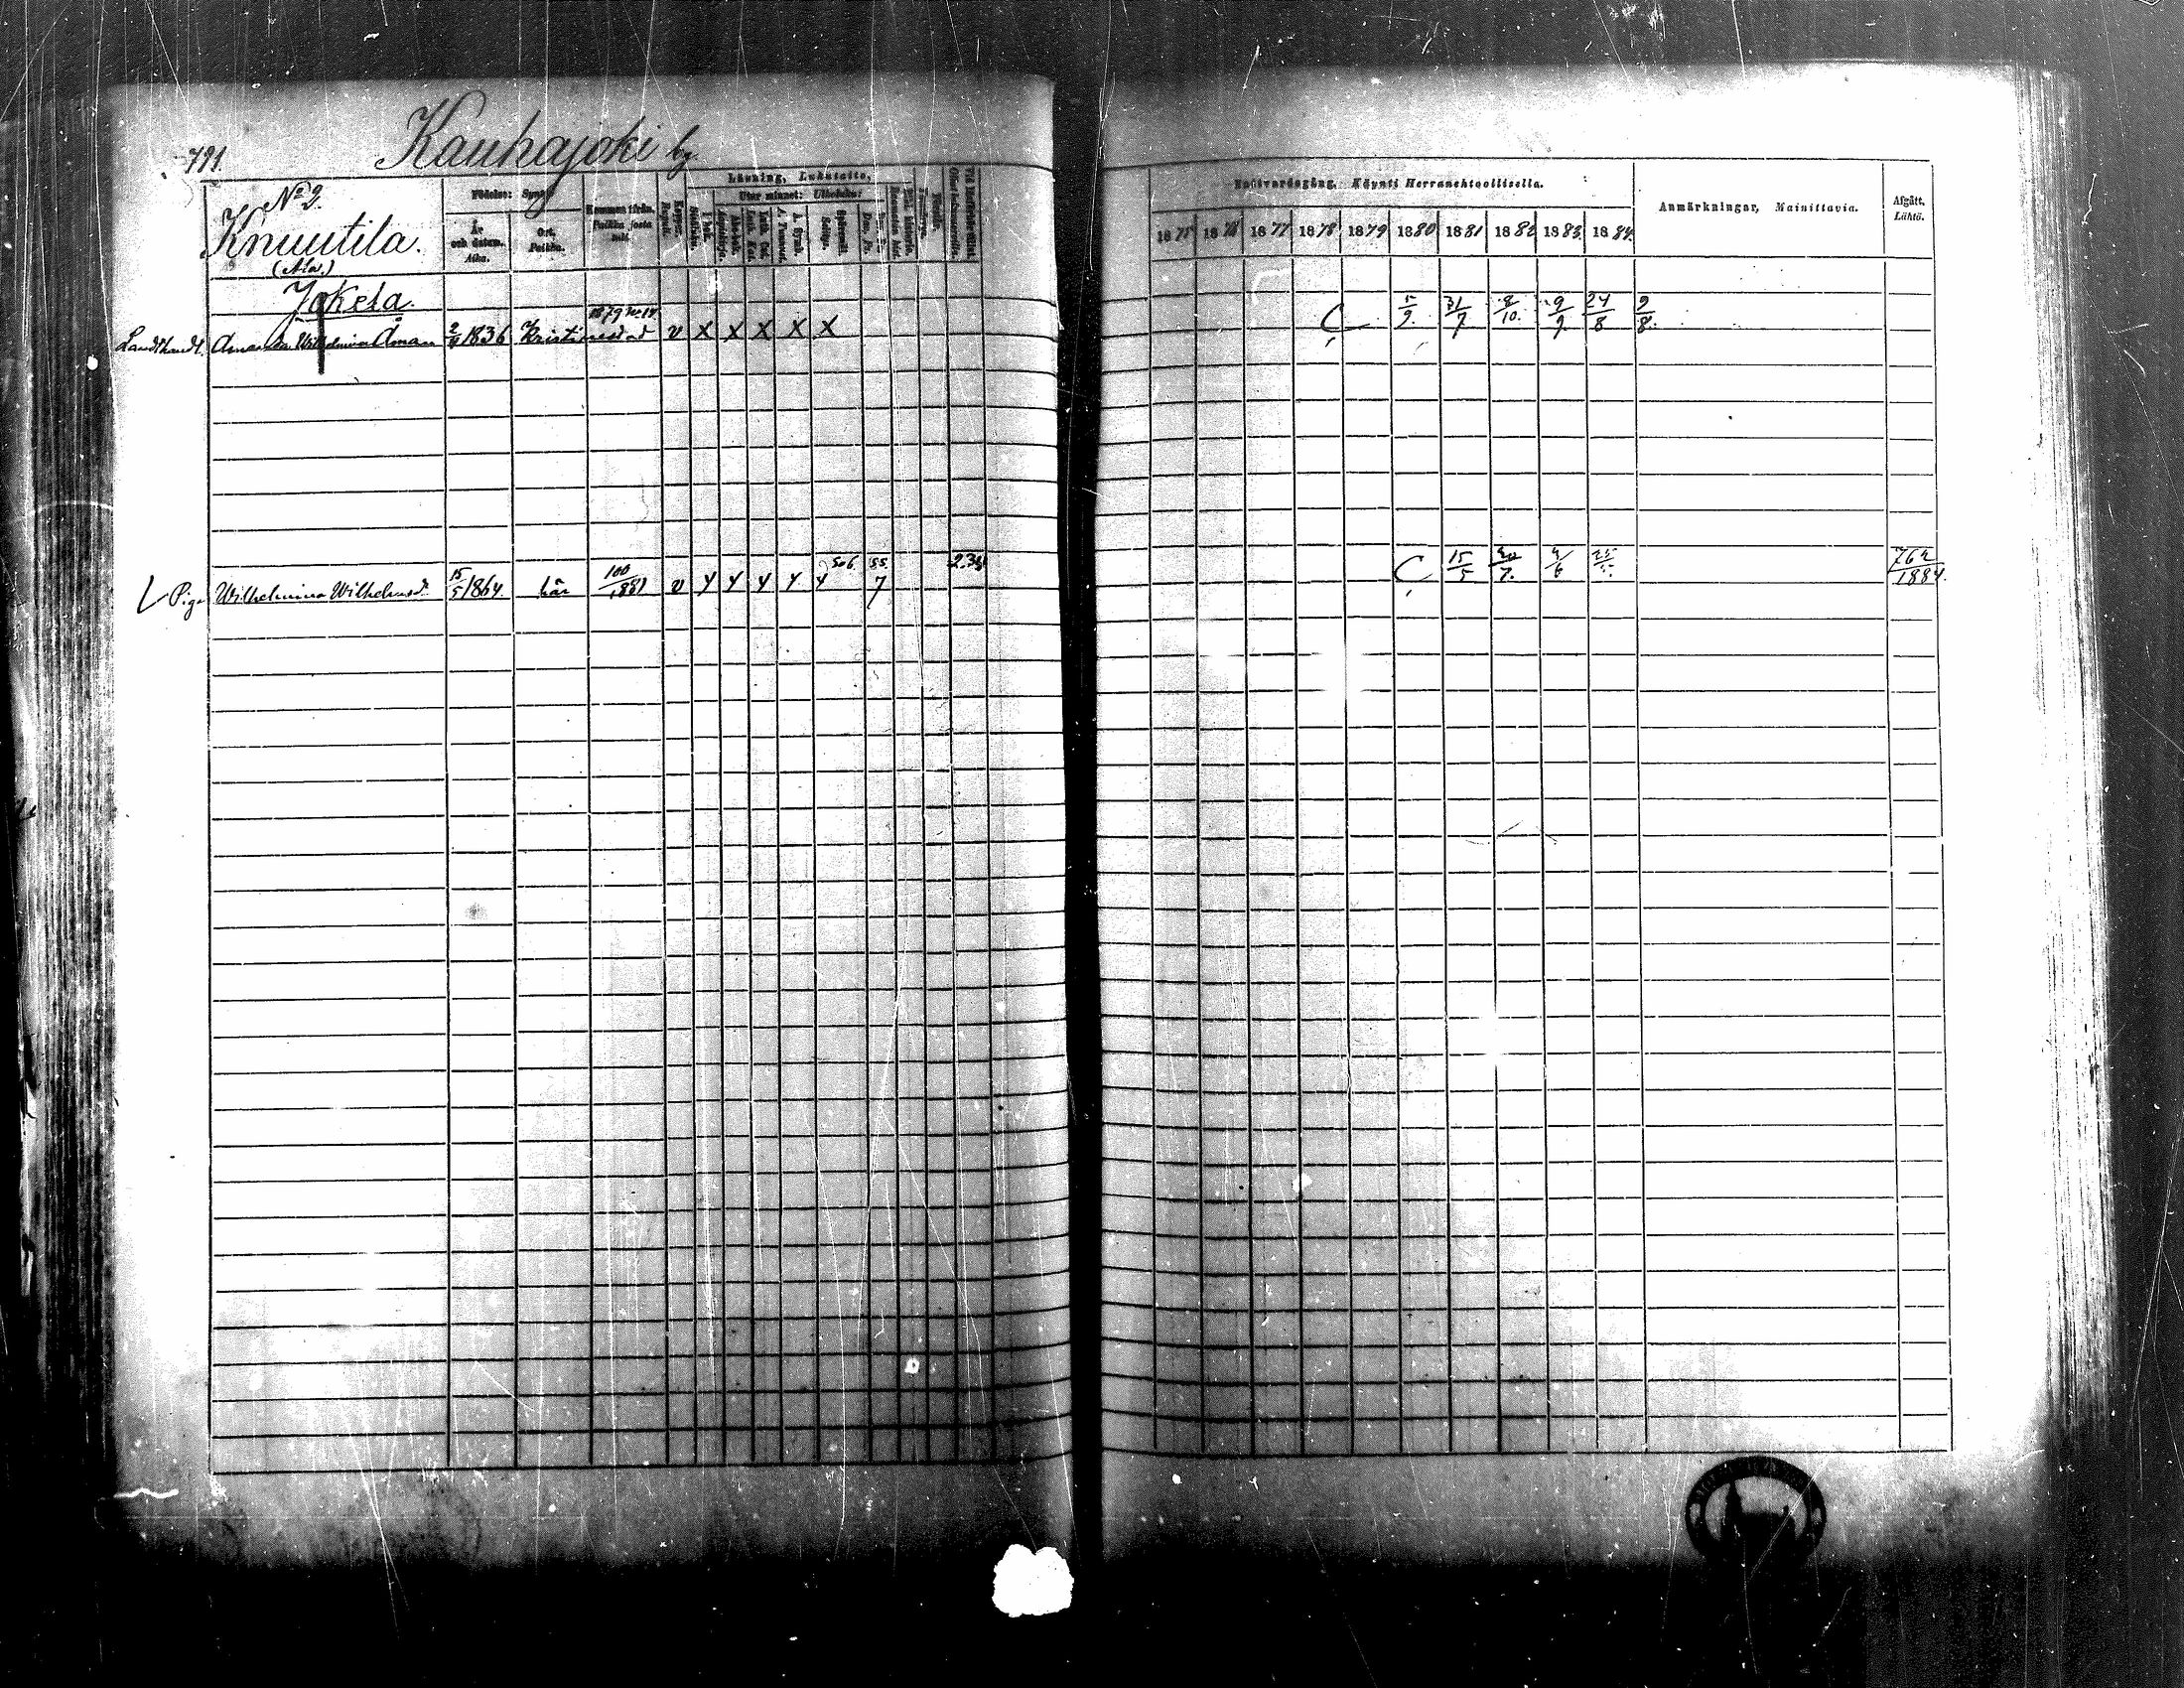 791.
Kauhajoki by
No 2.
Knuutila.
(Ala.)
Jokela.
Födelse: Synty
År och datum. Aika.
Ort. Paikka.
Kommen ifrån. Paikka josta tuli.
Koppor. Rupuli.
Läsning, Lukutaito,
Utur minnet: Ulkoluku:
I bok.
Nattvardsgång, Käynti Herranehtoollisella.
1875 1876 1877 1878 1879 1880 1881 1882 1883 1884
Anmärkningar, Mainittavia.
Afgått. Lähtö.
Landthandl. Amanda Wilhelmina Åman 2/4 1836 Kristinestad 1879 v X X X X X 5/9. 31/7 8/10. 9/9 24/8 9/8.
Piga Wilhelmina Wilhelmsd. 15/5 1864 här 100/1881 v y y y y y 506 55 7 15/5 7. 6 762/1884.